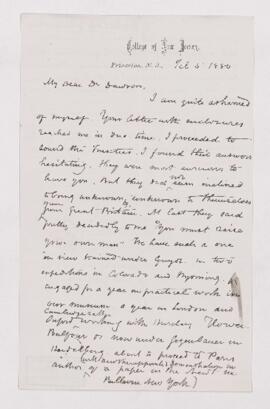 College of New Jersey.
Princeton, N. J. Feb 5 1880
My Dear Dr Dawson,
I am quite ashamed
of myself. Your letter with enclosures
reached me in due time. I proceeded to
sound the Trustees. I found their answers
hesitating. They were most anxious to
have you. But they did not seem inclined
to bring unknown, unknown to themselves
from Great Britain. At last they said
pretty decidedly to me "You must raise
your own man" We have such a one
in view trained under Guyot. in two
expeditions in Colorado and Wyoming,
engaged for a year on practical work in
our museum a year in London and
Cambridge
Oxford working with Huxley Flower
Balfour is now under Gegenbauer in
Heidelberg about to proceed to Paris
author of a paper in the
New York)